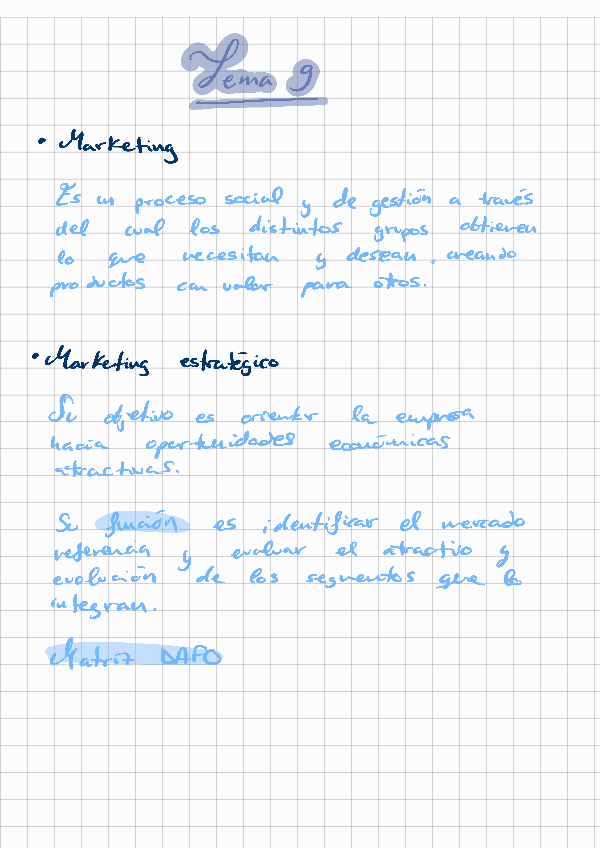 Tema 9
• Marketing
Es un proceso social y de gestión a través
del cual los distintos grupos obtienen
lo que necesitan y desean, creando
productos con valor para otros.
• Marketing estratégico
Su objetivo es orientar la empresa
hacia oportunidades económicas
atractivas.
Su función es identificar el mercado
referencia y evaluar el atractivo y
evolución de los segmentos que lo
integran.
Matriz DAFO